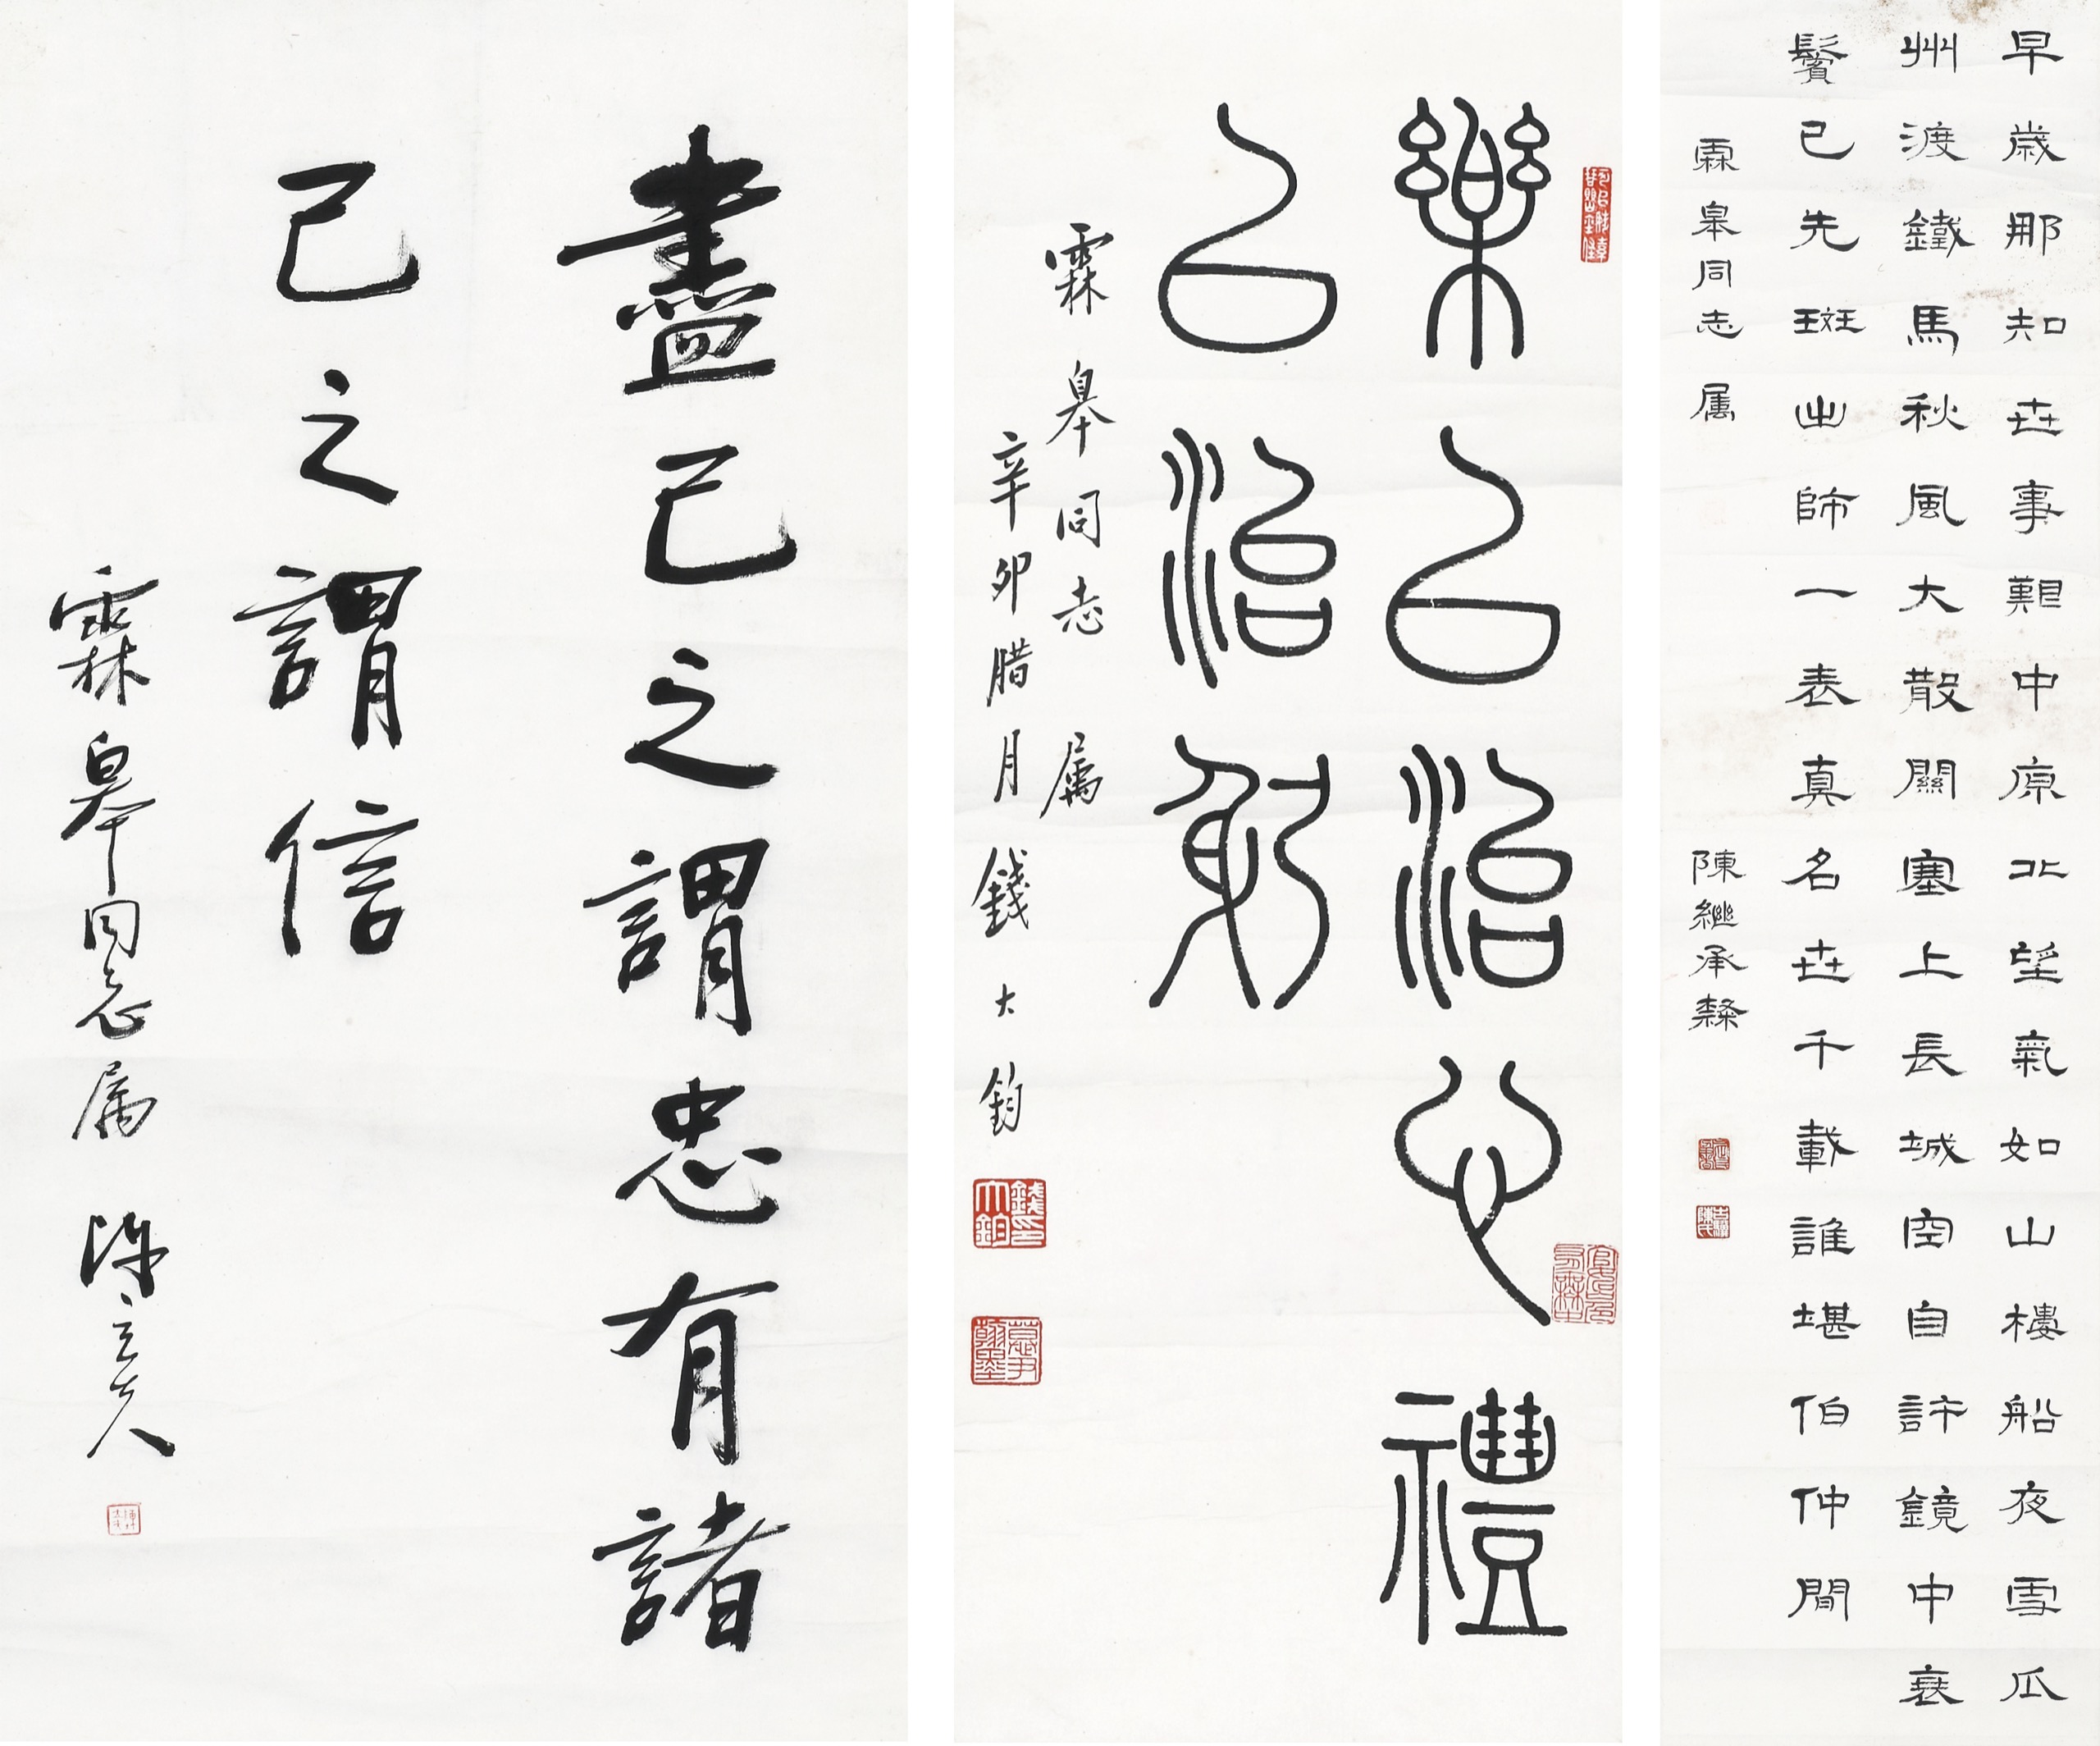 早歲那知世事艱中原北望氣如山樓船夜雪瓜
州渡鐵馬秋風大散關塞上長城空自許鏡中衰
鬢已先斑出師一表真名世千載誰堪伯仲間
霖皋同志属
陳繼承隸
樂以治心禮
以治躬
霖皋同志属
辛卯腊月錢大鈞
錢大鈞印
慕尹翰墨
盡己之謂忠有諸
己之謂信
霖皋同志属 陳立夫